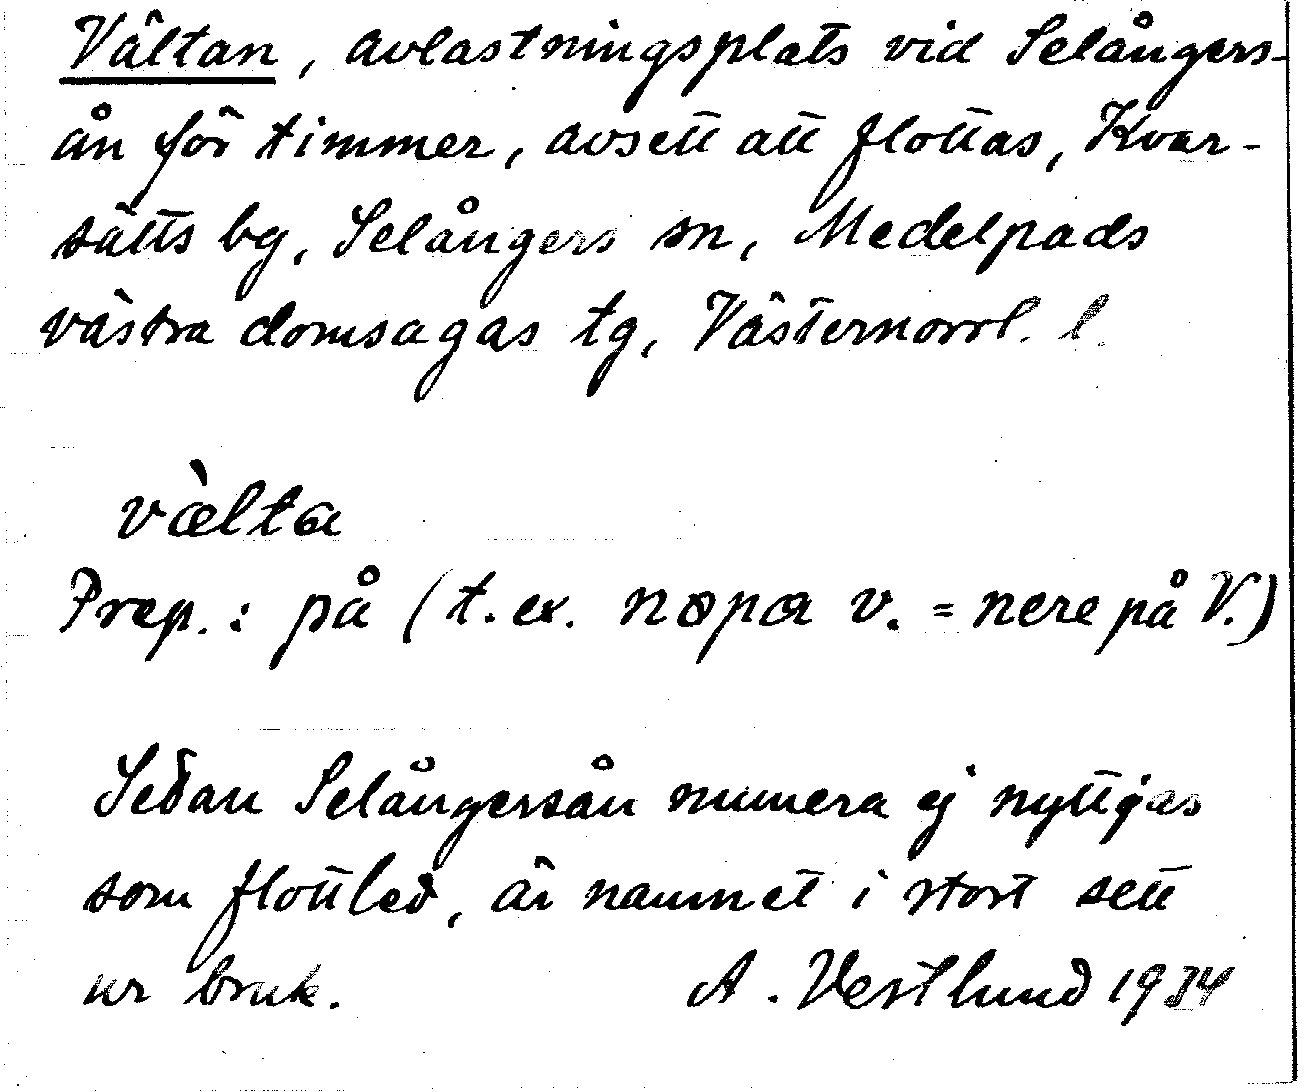 Vältan, avlastningsplats vid Selångers-
ån för timmer, avsett att flottas, Kvar-
sätts by, Selångers sn, Medelpads
västra domsagas tg, Västernorrl. l.
vὰlta
Prep.: på (t.ex. nɔpa v. = nere på V.)
Sedan Selångersån numera ej nyttjas
som flottled, är namnet i stort sett
ur bruk. A. Vestlund 1934